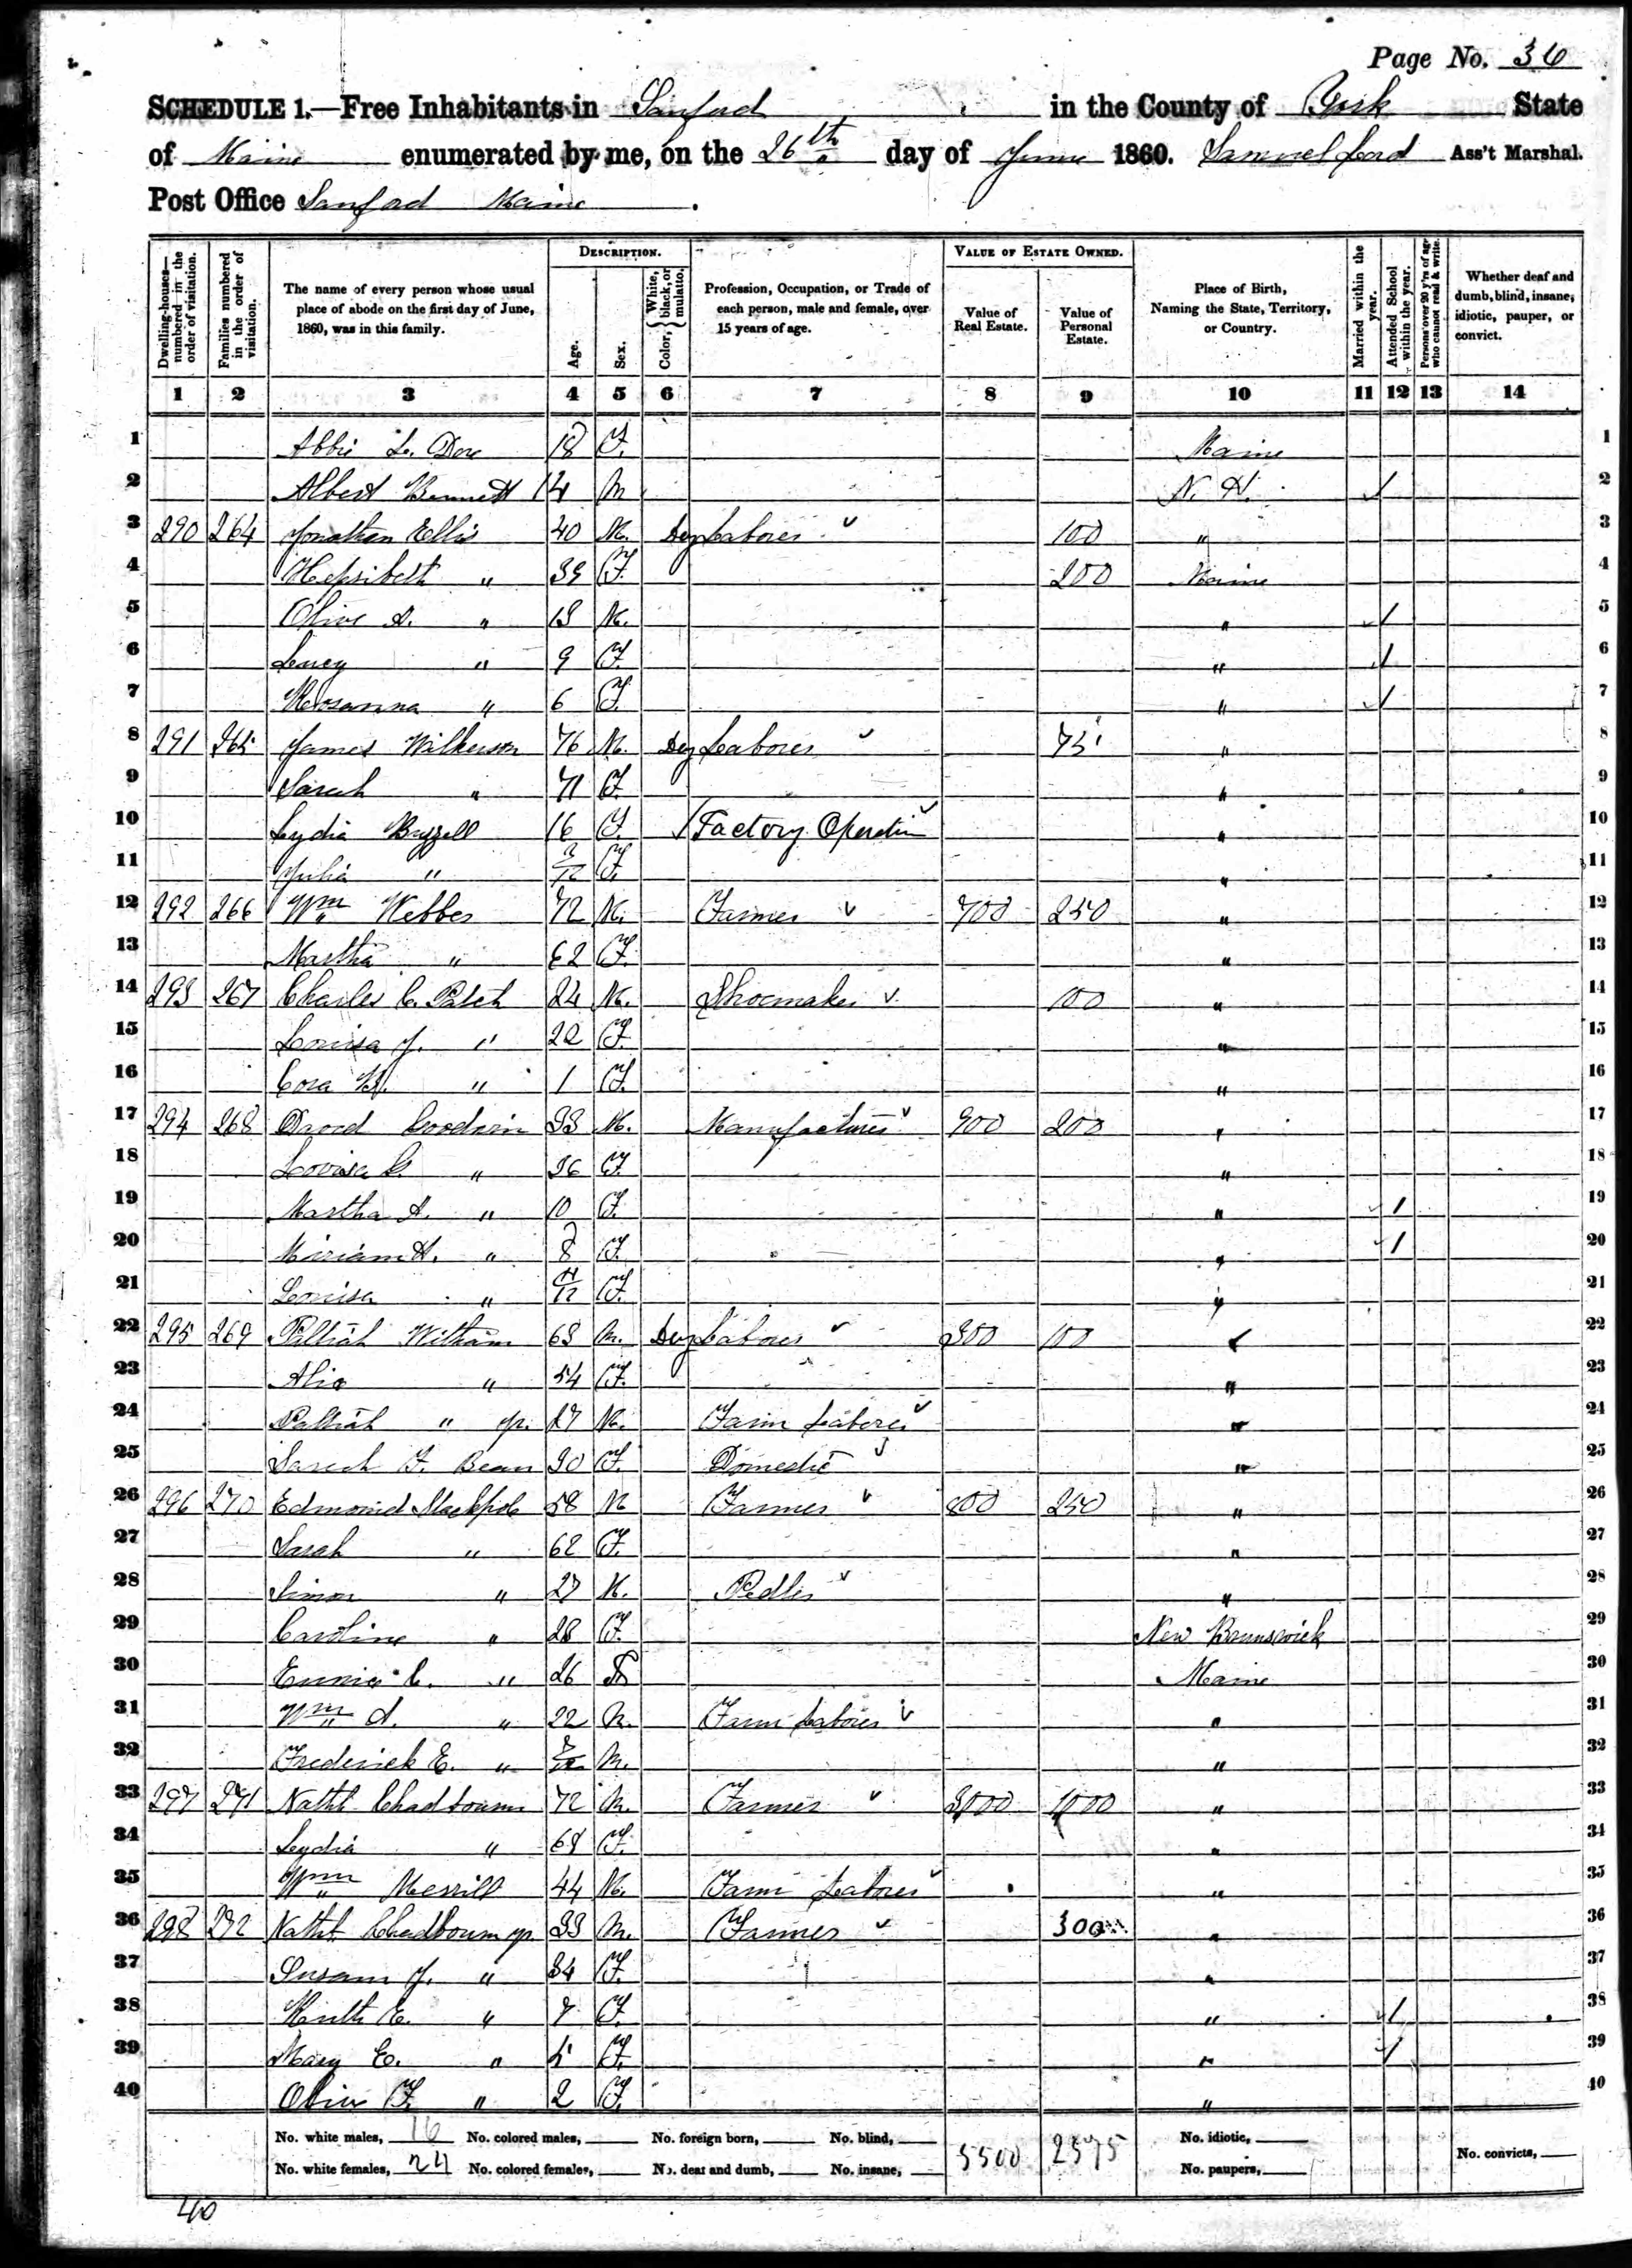 Page No. 36
SCHEDULE 1.—Free Inhabitants in Sanford in the County of York State
of Maine enumerated by me, on the 26th day of June 1860. Samuel Lord Ass't Marshal.
Post Office Sanford Maine .
DESCRIPTION. VALUE OF ESTATE OWNED.
Dwelling-houses—numbered in the order of visitation. Families numbered in the order of visitation. The name of every person whose usual place of abode on the first day of June, 1860, was in this family. Age. Sex. Color, { White, black, or mulatto. Profession, Occupation, or Trade of each person, male and female, over 15 years of age. Value of Real Estate. Value of Personal Estate. Place of Birth, Naming the State, Territory, or Country. Married within the year. Attended School within the year. Persons over 20 y'rs of age who cannot read & write. Whether deaf and dumb, blind, insane, idiotic, pauper, or convict.
1 2 3 4 5 6 7 8 9 10 11 12 13 14
1 Abbie L. Dore 18 F. Maine 1
2 Albert Bennett 14 M N. H. / 2
3 290 264 Jonathan Ellis 40 M. Day Laborer 100 " 3
4 Hepsibeth " 39 F. 200 Maine 4
5 Olive A. " 13 M. " / 5
6 Lucy " 9 F. " / 6
7 Rosanna " 6 F. " / 7
8 291 265 James Wilkerson 76 M. Day Laborer 75 " 8
9 Sarah " 71 F. " 9
10 Lydia Buzzell 16 F. / Factory Operative " 10
11 Julia " F. " 11
12 292 266 Wm Webber 72 M. Farmer 700 250 " 12
13 Martha " 62 F. " 13
14 293 267 Charles C. Patch 24 M. Shoemaker 100 " 14
15 Louisa J. " 22 F. " 15
16 Cora " 1 F. " 16
17 294 268 David Goodwin 33 M. Manufacturer 900 200 " 17
18 Lovisa " 36 F. " 18
19 Martha A. " 10 F. " / 19
20 Miriam H. " 8 F. " / 20
21 Louisa " F. " 21
22 295 269 Witham 63 M. Day Laborer 300 100 " 22
23 " 54 F. " 23
24 " Jr. 27 M. Farm Laborer " 24
25 Sarah F. Bean 30 F. Domestic " 25
26 296 270 Edmond Stackpole 58 M Farmer 800 250 " 26
27 Sarah " 62 F. " 27
28 Simon " 27 M. Pedler " 28
29 Caroline " 28 F. New Brunswick 29
30 Eunice C. " 26 Maine 30
31 Wm A. " 22 M. Farm Laborer " 31
32 Frederick E. " M. " 32
33 297 271 Nathl Chadbourn 72 M. Farmer 3000 1000 " 33
34 Lydia " 68 F. " 34
35 Wm Merrill 44 M. Farm Laborer " 35
36 298 272 Nathl Chadbourn Jr. 33 M. Farmer 300 " 36
37 Susann J. " 34 F. " 37
38 Ruth E. " 7 F. " / 38
39 Mary E. " 5 F. " / 39
40 Olive F. " 2 F. " 40
No. white males, 16 No. colored males, No. foreign born, No. blind, 5500 2575 No. idiotic,
No. white females, 24 No. colored females, No. deaf and dumb, No. insane, No. paupers, No. convicts,
40